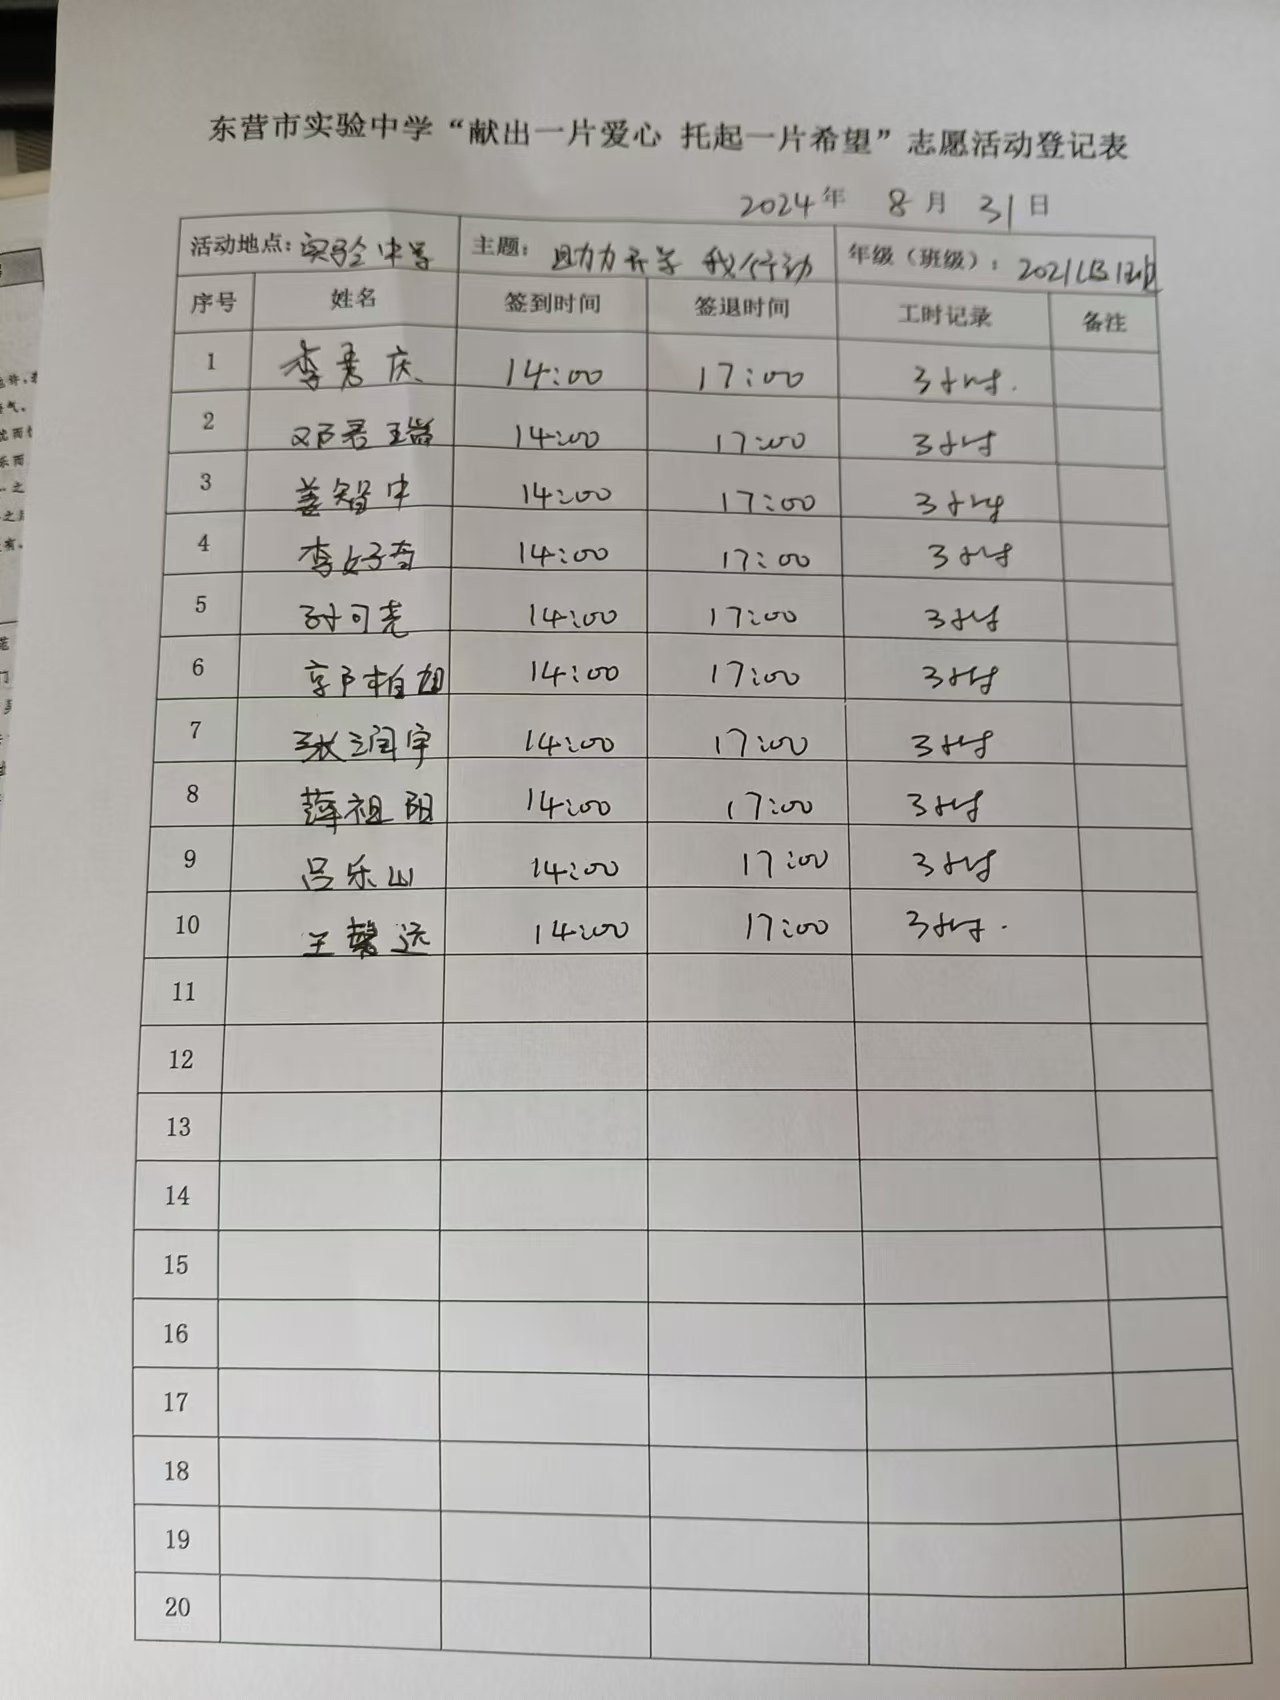 东营市实验中学“献出一片爱心 托起一片希望”志愿活动登记表
2024年 8月 31日
活动地点：实验中学 主题：助力开学 我行动 年级（班级）：2021级
序号 姓名 签到时间 签退时间 工时记录 备注
1 李秀庆 14:00 17:00 3小时.
2 邓君瑞 14:00 17:00 3小时
3 姜智中 14:00 17:00 3小时
4 李好奇 14:00 17:00 3小时
5 孙可尧 14:00 17:00 3小时
6 14:00 17:00 3小时
7 张润宇 14:00 17:00 3小时
8 薛祖阳 14:00 17:00 3小时
9 吕乐山 14:00 17:00 3小时
10 王馨远 14:00 17:00 3小时.
11
12
13
14
15
16
17
18
19
20